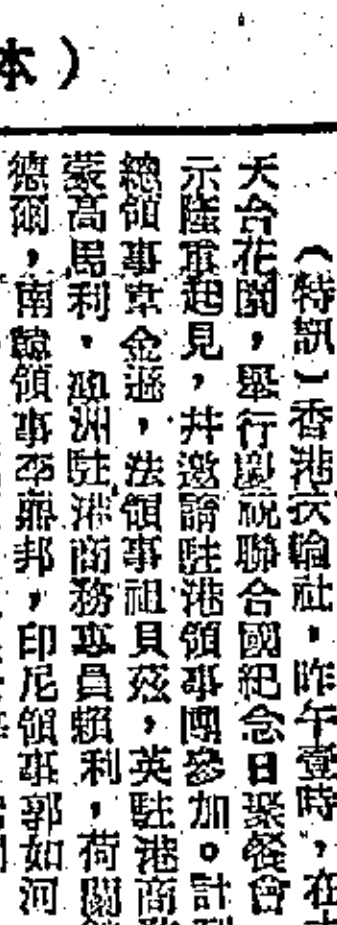 本）
（特訊）香港扶輪社，昨午壹時，在
天台花園，舉行慶祝聯合國紀念日聚餐會
示隆重起見，并邀請駐港領事團參加。計到
總領事京金遜，法領事祖貝茲，英駐港商務
蒙高馬利，澳洲駐港商務專員賴利，荷蘭
德爾，南韓領事李鼎邦，印尼領事郭如河